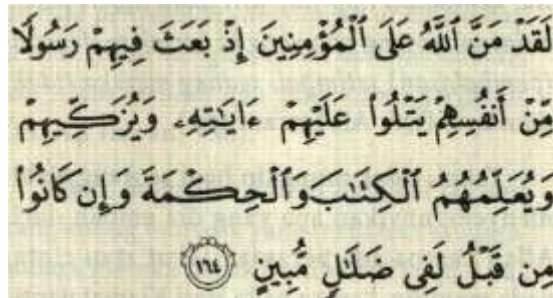 لَقَدْ مَنَّ ٱللَّهُ عَلَى ٱلْمُؤْمِنِينَ إِذْ بَعَثَ فِيهِمْ رَسُولًا
مِّنْ أَنفُسِهِمْ يَتْلُوا۟ عَلَيْهِمْ ءَايَٰتِهِۦ وَيُزَكِّيهِمْ
وَيُعَلِّمُهُمُ ٱلْكِتَٰبَ وَٱلْحِكْمَةَ وَإِن كَانُوا۟
مِن قَبْلُ لَفِى ضَلَٰلٍ مُّبِينٍ ١٦٤